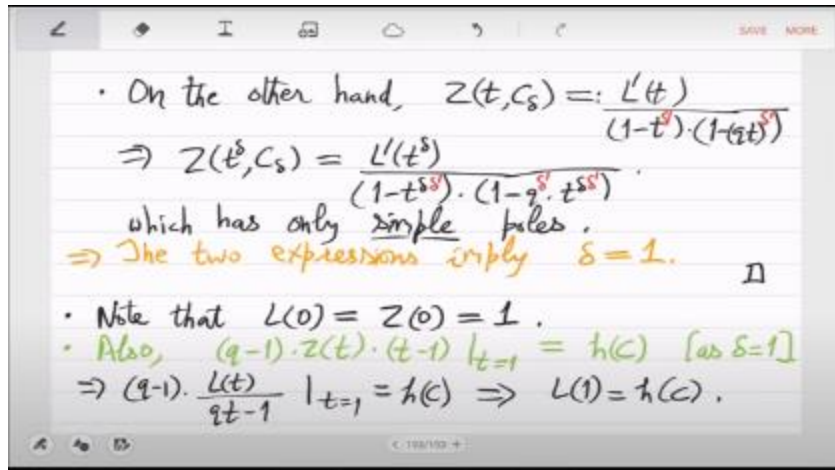 SAVE MORE
· On the other hand, Z(t, C_δ) =: L'(t) / (1-t^δ')·(1-(qt)^δ')
⇒ Z(t^δ, C_δ) = L'(t^δ) / (1-t^δδ')·(1-q^δ'·t^δδ') .
which has only simple poles.
⇒ The two expressions imply δ=1. □
· Note that L(0) = Z(0) = 1.
· Also, (q-1)·Z(t)·(t-1)|_{t=1} = h(C) [as δ=1]
⇒ (q-1)· L(t) / qt-1 |_{t=1} = h(C) ⇒ L(1) = h(C).
< 193/193 +